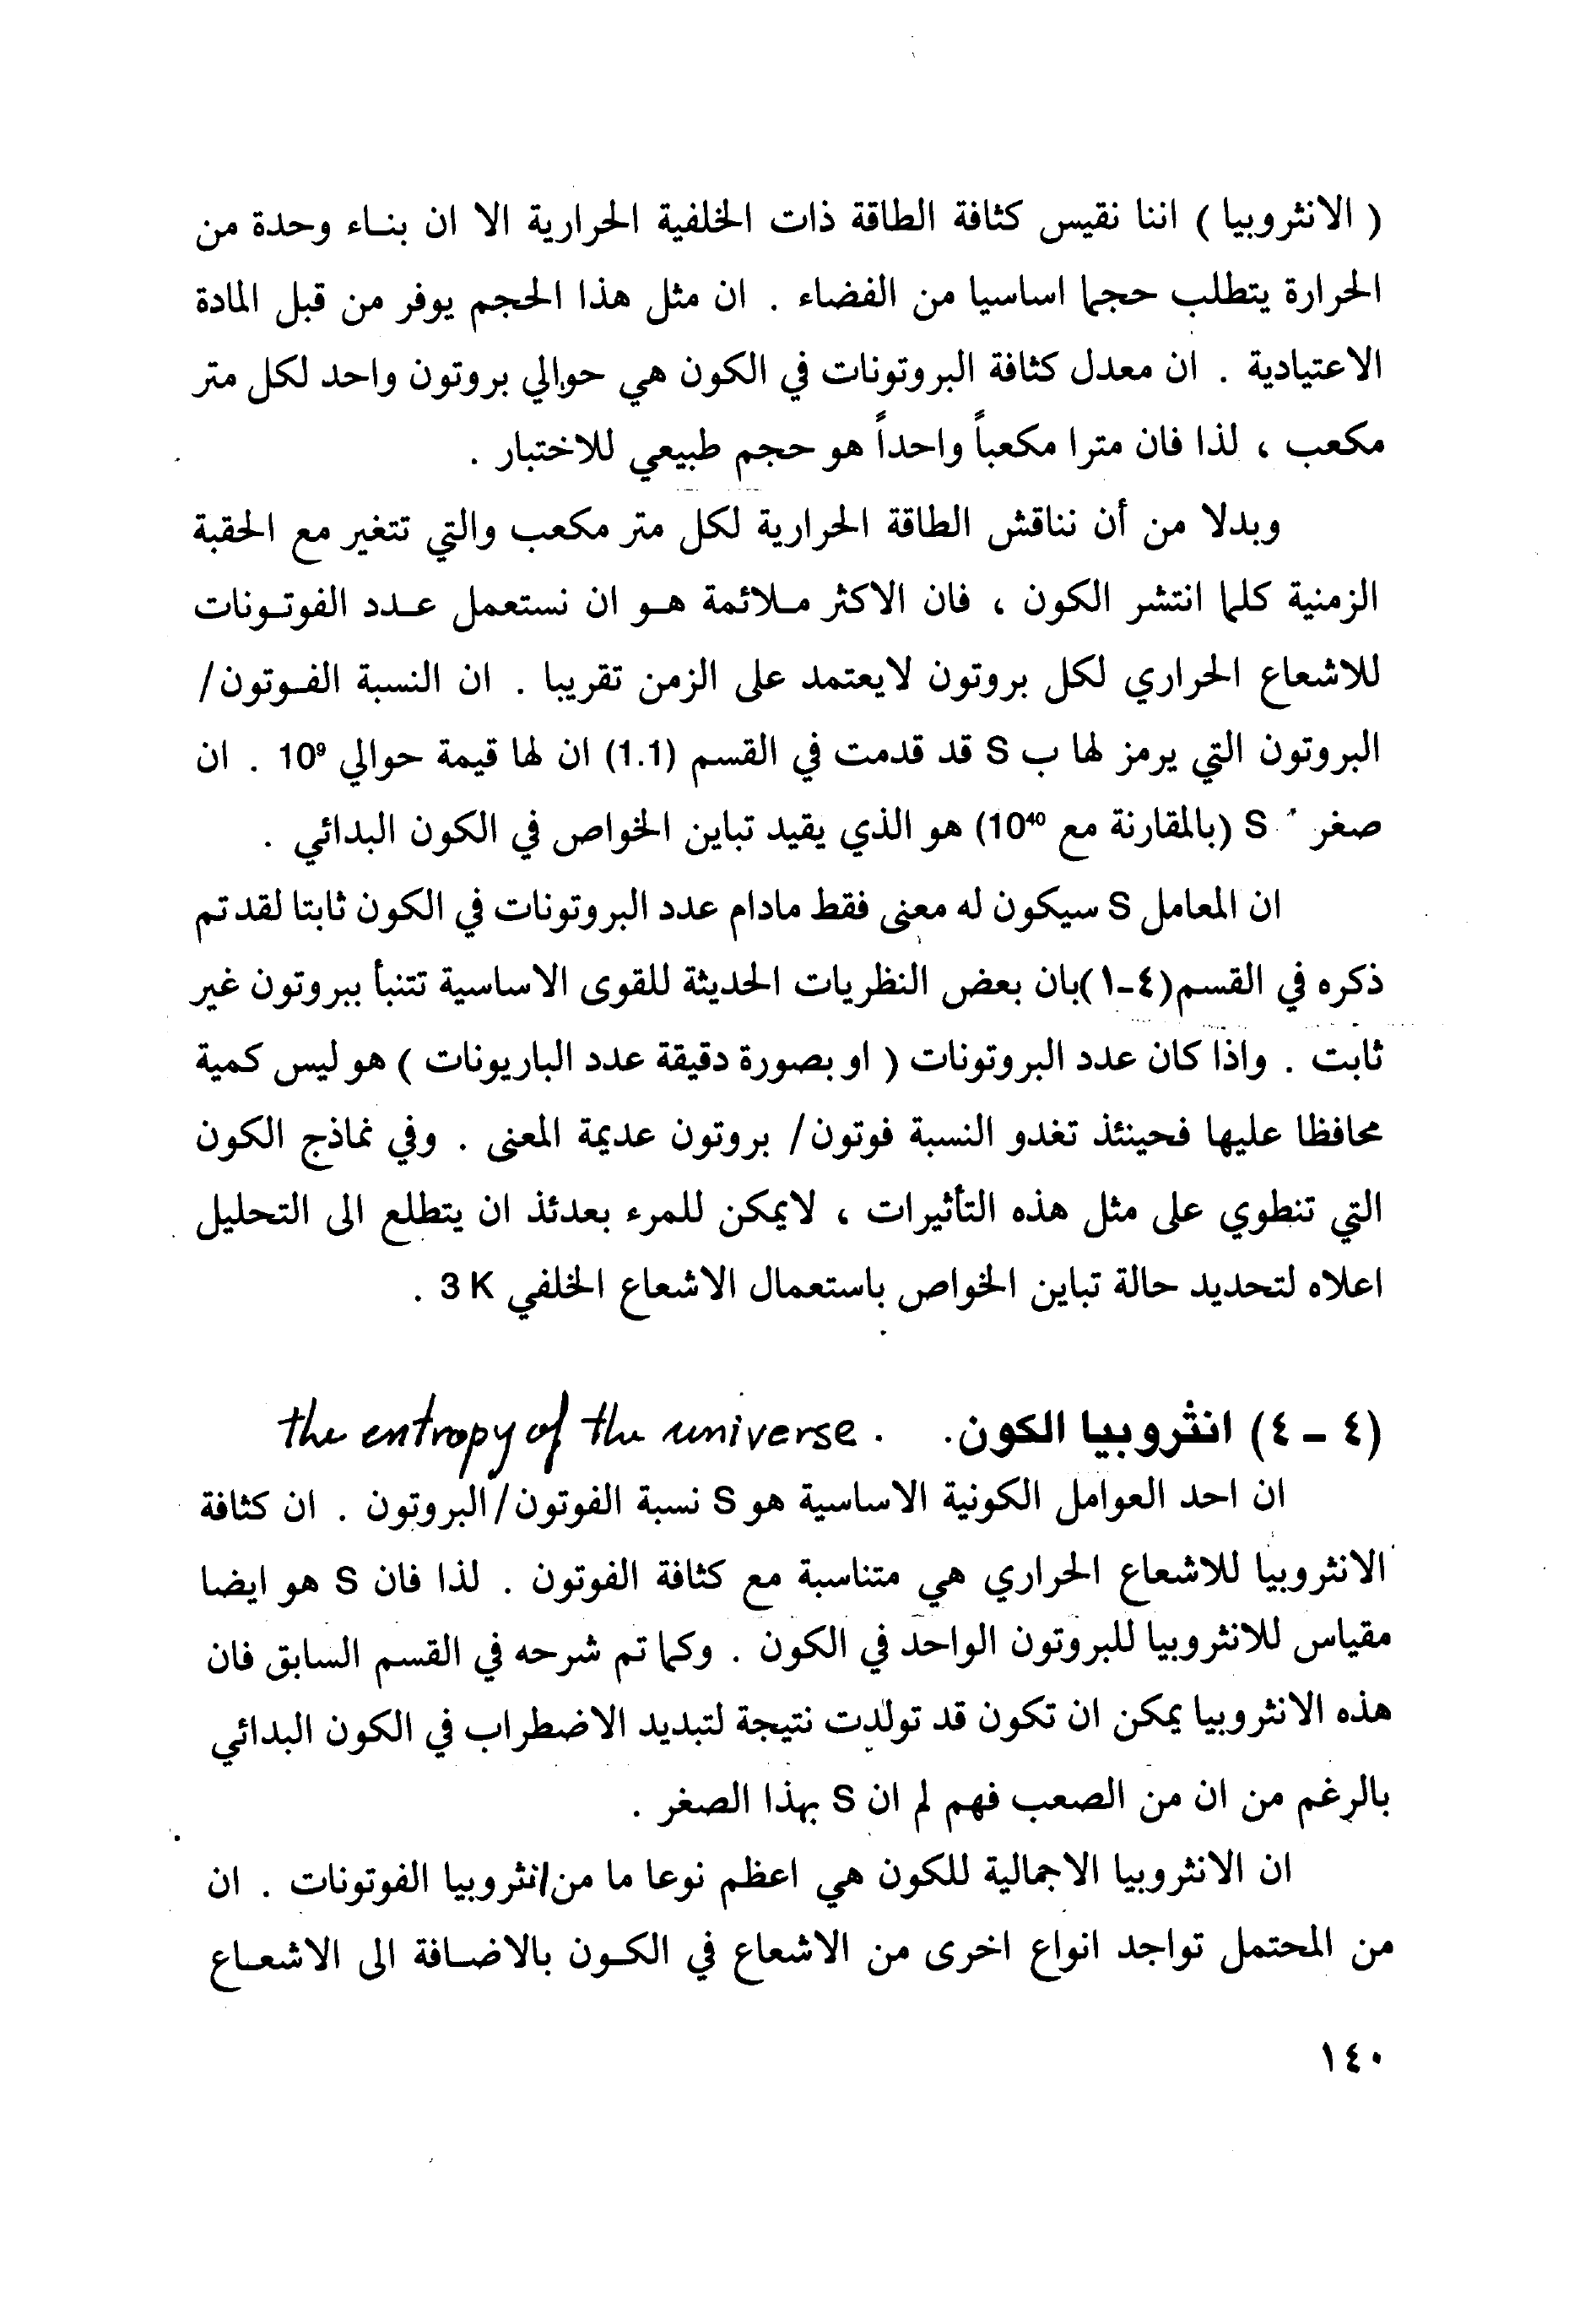 ( الانثروبيا ) اننا نقيس كثافة الطاقة ذات الخلفية الحرارية الا ان بنـاء وحدة من
الحرارة يتطلب حجما اساسيا من الفضاء . ان مثل هذا الحجم يوفر من قبل المادة
الاعتيادية . ان معدل كثافة البروتونات في الكون هي حوالي بروتون واحد لكل متر
مكعب ، لذا فان مترا مكعباً واحداً هو حجم طبيعي للاختبار .
وبدلا من أن نناقش الطاقة الحرارية لكل متر مكعب والتي تتغير مع الحقبة
الزمنية كلما انتشر الكون ، فان الاكثر مـلائمة هـو ان نستعمل عـدد الفوتـونات
للاشعاع الحراري لكل بروتون لايعتمد على الزمن تقريبا . ان النسبة الفـوتون/
البروتون التي يرمز لها ب S قد قدمت في القسم (1.1) ان لها قيمة حوالي 10⁹ . ان
صغر S (بالمقارنة مع 10⁴⁰) هو الذي يقيد تباين الخواص في الكون البدائي .
ان المعامل S سيكون له معنى فقط مادام عدد البروتونات في الكون ثابتا لقد تم
ذكره في القسم(٤-١)بان بعض النظريات الحديثة للقوى الاساسية تتنبأ ببروتون غير
ثابت . واذا كان عدد البروتونات ( او بصورة دقيقة عدد الباريونات ) هو ليس كمية
محافظا عليها فحينئذ تغدو النسبة فوتون/ بروتون عديمة المعنى . وفي نماذج الكون
التي تنطوي على مثل هذه التأثيرات ، لايمكن للمرء بعدئذ ان يتطلع الى التحليل
اعلاه لتحديد حالة تباين الخواص باستعمال الاشعاع الخلفي 3 K .
(٤ – ٤) انثروبيا الكون. the entropy of the universe .
ان احد العوامل الكونية الاساسية هو S نسبة الفوتون/البروتون . ان كثافة
الانثروبيا للاشعاع الحراري هي متناسبة مع كثافة الفوتون . لذا فان S هو ايضا
مقياس للانثروبيا للبروتون الواحد في الكون . وكما تم شرحه في القسم السابق فان
هذه الانثروبيا يمكن ان تكون قد تولدت نتيجة لتبديد الاضطراب في الكون البدائي
بالرغم من ان من الصعب فهم لم ان S بهذا الصغر .
ان الانثروبيا الاجمالية للكون هي اعظم نوعا ما من انثروبيا الفوتونات . ان
من المحتمل تواجد انواع اخرى من الاشعاع في الكـون بالاضـافة الى الاشعـاع
١٤٠